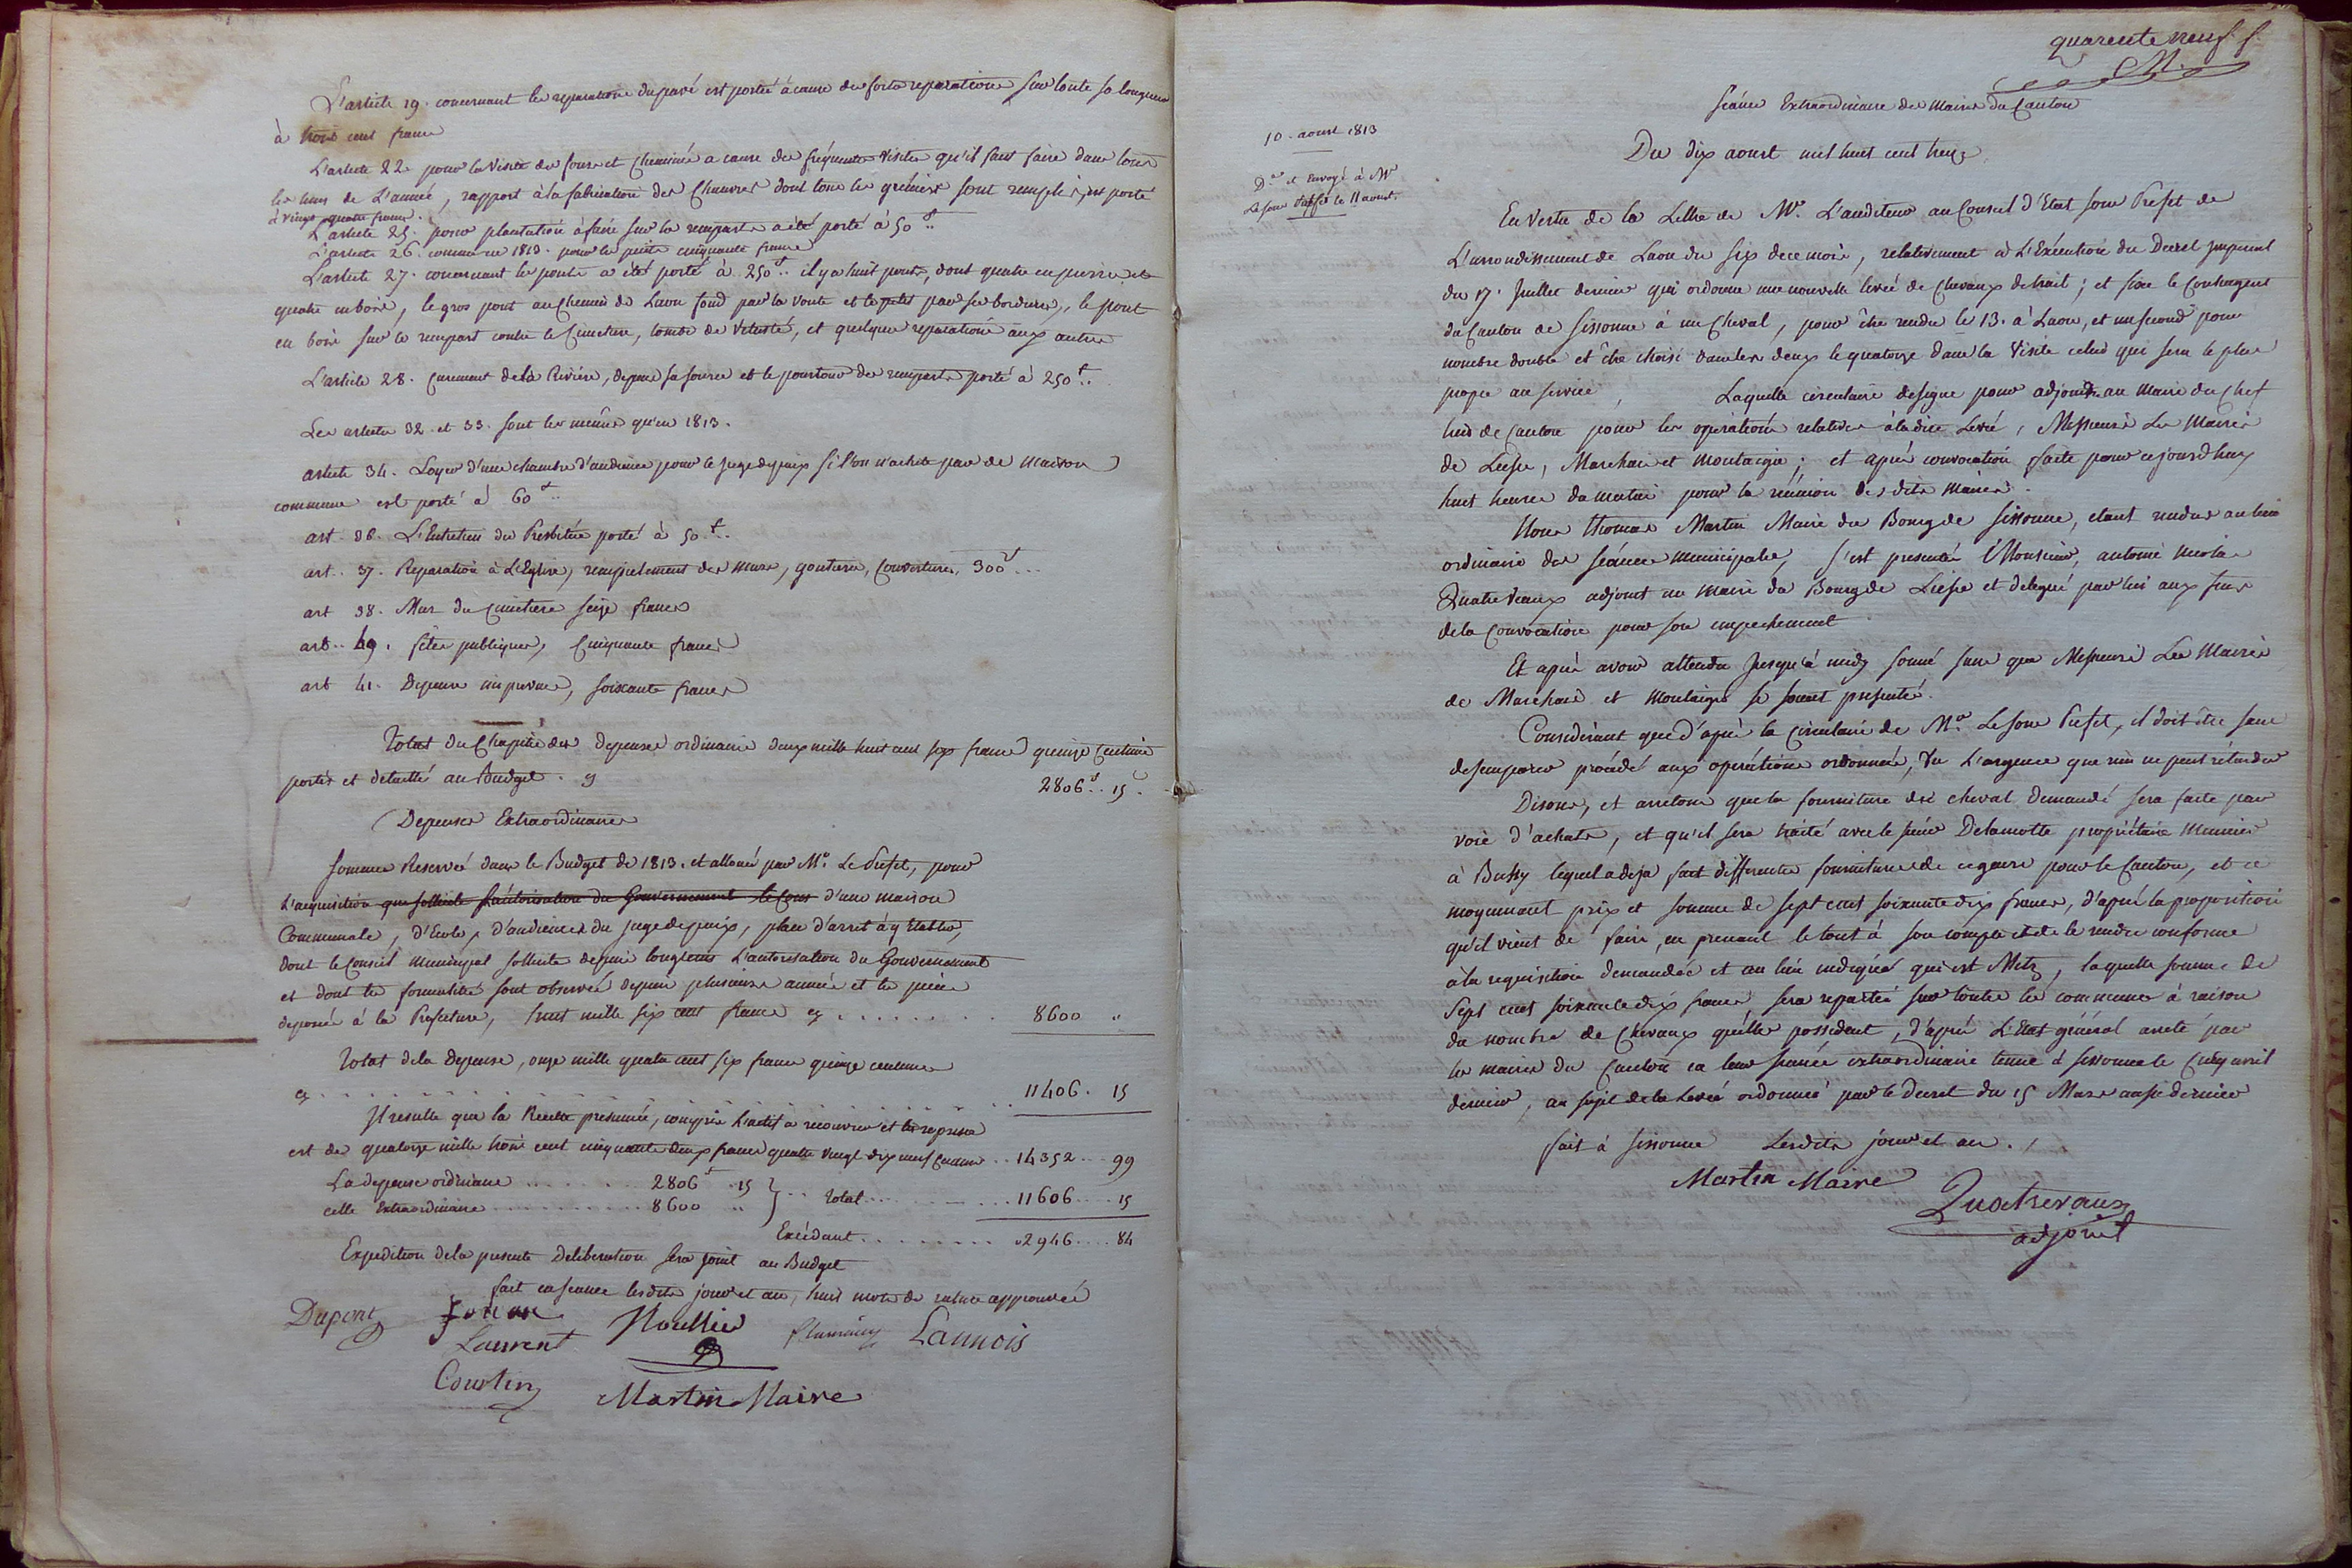 L'article 19. concernant les reparations du pavé est porté à cause des fortes reparations sur toute sa longueur
à trois cent francs
L'article 22 pour la visite des fours et cheminées a cause des fréquentes visites qu'il faut faire dans tous
les tems de L'année, rapport à la fabrication des Chanvres dont tous les greniers sont remplis, est porté
à vingt quatre francs.
L'article 25. pour plantation à faire sur les remparts a été porté à 50 f..
L'article 26. comme en 1813. pour les puits cinquante francs
L'article 27. concernant les ponts a été porté à 250 f.. il y a huit ponts, dont quatre en pierre et
quatre en bois, le gros pont au chemin de Laon fond par la voute et le petit par ses bordures, le pont
en bois sur le rempart contre le Cimetiere, tombe de vetusté, et quelques reparations aux autres
L'article 28. Curement de la Riviere, depuis sa source et le pourtour des remparts porté à 250 f..
Les articles 32 et 33. sont les mêmes qu'en 1813.
article 34. Loyer d'une chambre d'audience pour le juge de paix si l'on n'achete pas de maison
commune est porté à 60 f..
art. 36. L'Entretien du Presbitère porté à 50 f..
art. 37. Reparation à L'Eglise, rempietement des murs, goutieres, Couvertures, 300 f...
art 38. Mur du Cimetiere seize francs
art.. 40. fêtes publiques, Cinquante francs
art 41. Depense imprevue, soixante francs
Total du Chapitre des depenses ordinaires deux mille huit cent six francs quinze centimes
portés et detaillé au Budget. 9
2806 f.. 15 c.
Depenses Extraordinaires
Somme Reservée dans le Budget de 1813. et allouée par Mr. Le Prefet, pour
L'acquisition que sollicite l'autorisation du Gouvernement le Cons d'une maison
Communale, d'Ecole, d'audiences du juge de paix, place d'arrest à y Etablir,
dont le Conseil municipal sollicite depuis longtems L'autorisation du Gouvernement
et dont les formalités sont observées depuis plusieurs années et les pieces
deposées à la Prefecture, huit mille six cent francs cy . . . . . . . 8600 ..
Total de la depense, onze mille quatre cent six francs quinze centimes
cy . . . . . . . . . . . . . . . . . . . . 11406. 15
Il resulte que la Recette presumée, compris l'actif a recouvrer et les reprises
est de quatorze mille trois cent cinquante deux francs quatre vingt dix neuf Centimes .. 14352 .. 99
La depense ordinaire . . . . . . . 2806 f .. 15
celle Extraordinaire . . . . . . . 8600 .. } .. Total . . . . . . 11606 .... 15
Excédant . . . . . . . . 2946 .... 84
Expedition de la presente Deliberation sera joint au Budget
fait en seance lesdits jour et an, huit mots de rature approuvés
Dupont Laurent Noullier Lannois
Courtin Martin Maire
quarente neuf f.
M.
Séance Extraordinaire des Maires du Canton
Du dix aoust mil huit cent treize
10. aoust 1813
Dr. et Envoyé à Mr
Le sous Préfet le 11 aoust.
En Vertu de la Lettre de Mr. L'auditeur au Conseil d'Etat sous Prefet de
L'arrondissement de Laon du six de ce mois, relativement à L'Exécution du Decret imperial
du 17. Juillet dernier qui ordonne une nouvelle levée de Chevaux de trait; et fixe le Contingent
du Canton de Sissonne à un Cheval, pour être rendu le 13. à Laon, et un second pour
nombre double et être choisi dans les deux le quatorze dans la Visite celui qui sera le plus
propre au service, Laquelle circulaire designe pour adjoints au Maire du Chef
lieu de Canton pour les opérations relatives à ladite Levée, Messieurs Les Maires
de Liesse, Marchais et Montaigu; et après convocation faite pour cejourdhuy
huit heures du matin pour la réunion desdits Maires.
Nous Thomas Martin Maire du Bourg de Sissonne, etant rendus au lieu
ordinaire des Séances municipales, s'est presenté Monsieur, antoine nicolas
Quatrevaux adjoint au Maire du Bourg de Liesse et delegué par lui aux fins
de la Convocation pour son empechement
Et après avoir attendu Jusqu'à midy sonné sans que Messieurs Les Maires
de Marchais et Montaigu se soient presentés.
Considérant que d'après la Circulaire de Mr. Le Sous Prefet, il doit être sans
desemparer procédé aux opérations ordonnées, Vu L'urgence que rien ne peut rétarder
Disons, et arretons que la fourniture du cheval demandé sera faite par
voie d'achats, et qu'il sera traité avec le sieur Delamotte propriétaire Meunier
à Bucy lequel a deja fait differentes fournitures de ce genre pour le Canton, et ce
moyennant prix et somme de sept cent soixante dix francs, d'après la proposition
qu'il vient de faire, en prenant le tout à son compte et de le rendre conforme
à la requisition demandée et au lieu indiqué qui est Metz, laquelle somme de
Sept cent soixante dix francs sera repartie sur toutes les communes à raison
du nombre de Chevaux qu'elles possedent, d'après L'Etat général arreté par
les maires du Canton en leur séance extraordinaire tenue à Sissonne le Cinq avril
dernier, au sujet de la Levée ordonnée par le Decret du 15 Mars aussi dernier
fait à Sissonne Lesdits jour et an. /
Martin Maire
Quatrevaux
adjoint